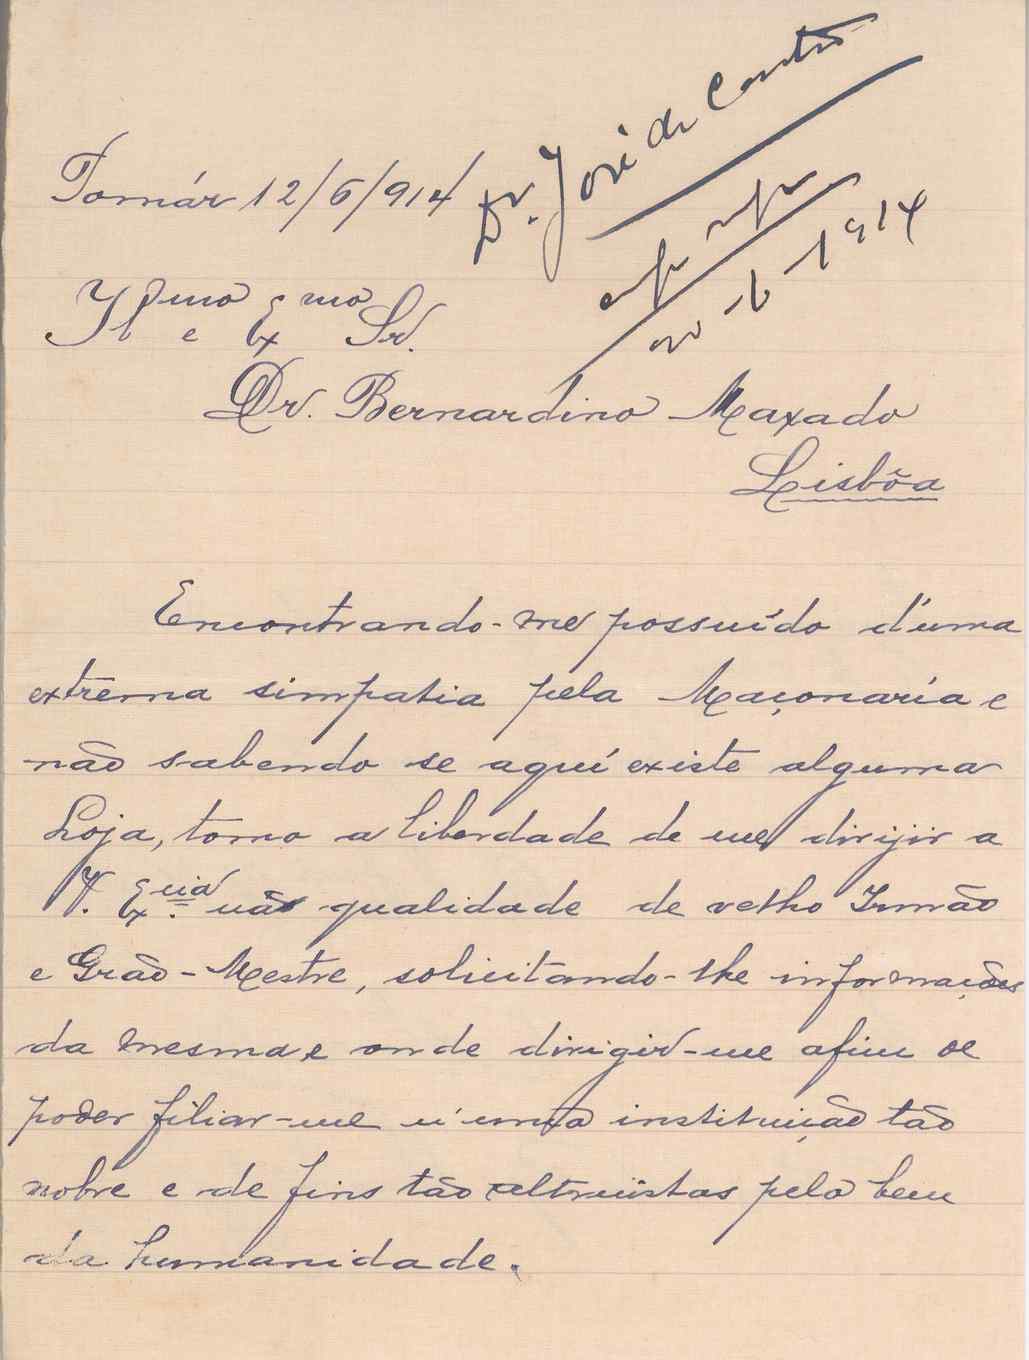 Dr. José de Castro
Tomár 12/6/914
20-6-1914
Illmo e Exmo Sr.
Dr. Bernardino Maxado
Lisbôa
Encontrando-me possuído d'uma
extrema simpatia pela Maçonaría e
não sabendo se aquí existe alguma
Loja, tomo a liberdade de me dirijir a
V. Excia. na qualidade de velho Irmão
e Grão-Mestre, solicitando-lhe informações
da mesma e onde dirigir-me afim de
poder filiar-me n'uma instituição tão
nobre e de fins tão altruístas pelo bem
da humanidade.